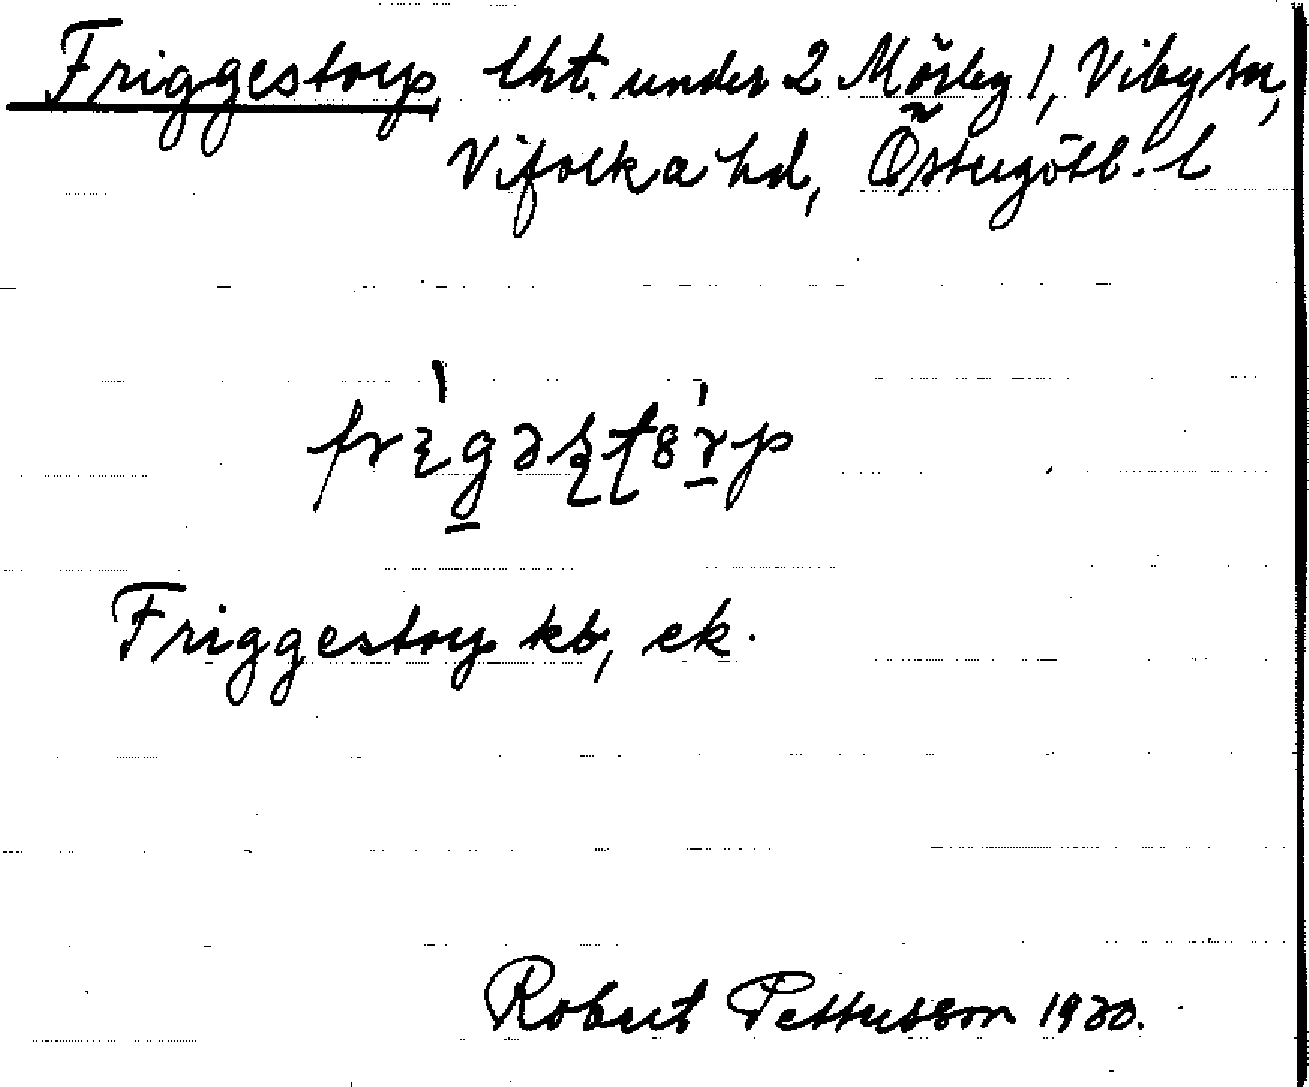 Friggestorp, lht. under 2 Mörby 1, Viby sn,
Vifolka hd, Östergötl. l
Friggestorp kb, ek.
Robert Pettersson 1930.